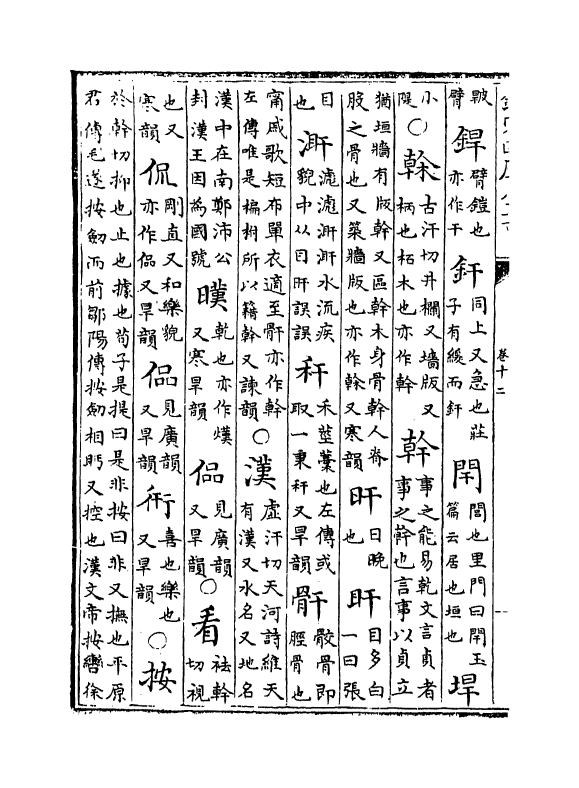 卷十二
臂 銲 臂鎧也亦作干 釬 同上又急也莊子有緩而釬 閈 閭也里門曰閈玉篇云居也垣也 垾
小隄○榦 古汗切井欄又墻版又柄也柘木也亦作幹 幹 事之能易乾文言貞者事之幹也言事以貞立
猶垣牆有版幹又區幹木身骨幹人脊股之骨也又築牆版也亦作榦又寒韻 旰 日晚也 盰 目多白一曰張
目也 水流疾貌中从目盰誤誤 秆 禾莖藁也左傳或取一秉秆又旱韻 骭 骹骨即脛骨也
甯戚歌短布單衣適至骭亦作幹左傳唯是楄柎所以籍幹又諫韻○漢 虛汗切天河詩維天有漢又水名又地名
漢中在南鄭沛公封漢王因為國號 暵 乾也亦作熯又寒旱韻 見廣韻又旱韻○看 袪幹切視
也又寒韻 侃 剛直又和樂貌亦作偘又旱韻 偘 見廣韻又旱韻 衎 喜也樂也又旱韻○按
於幹切抑也止也據也荀子是提曰是非按曰非又撫也平原君傳毛遂按劒而前鄒陽傳按劒相眄又控也漢文帝按轡徐